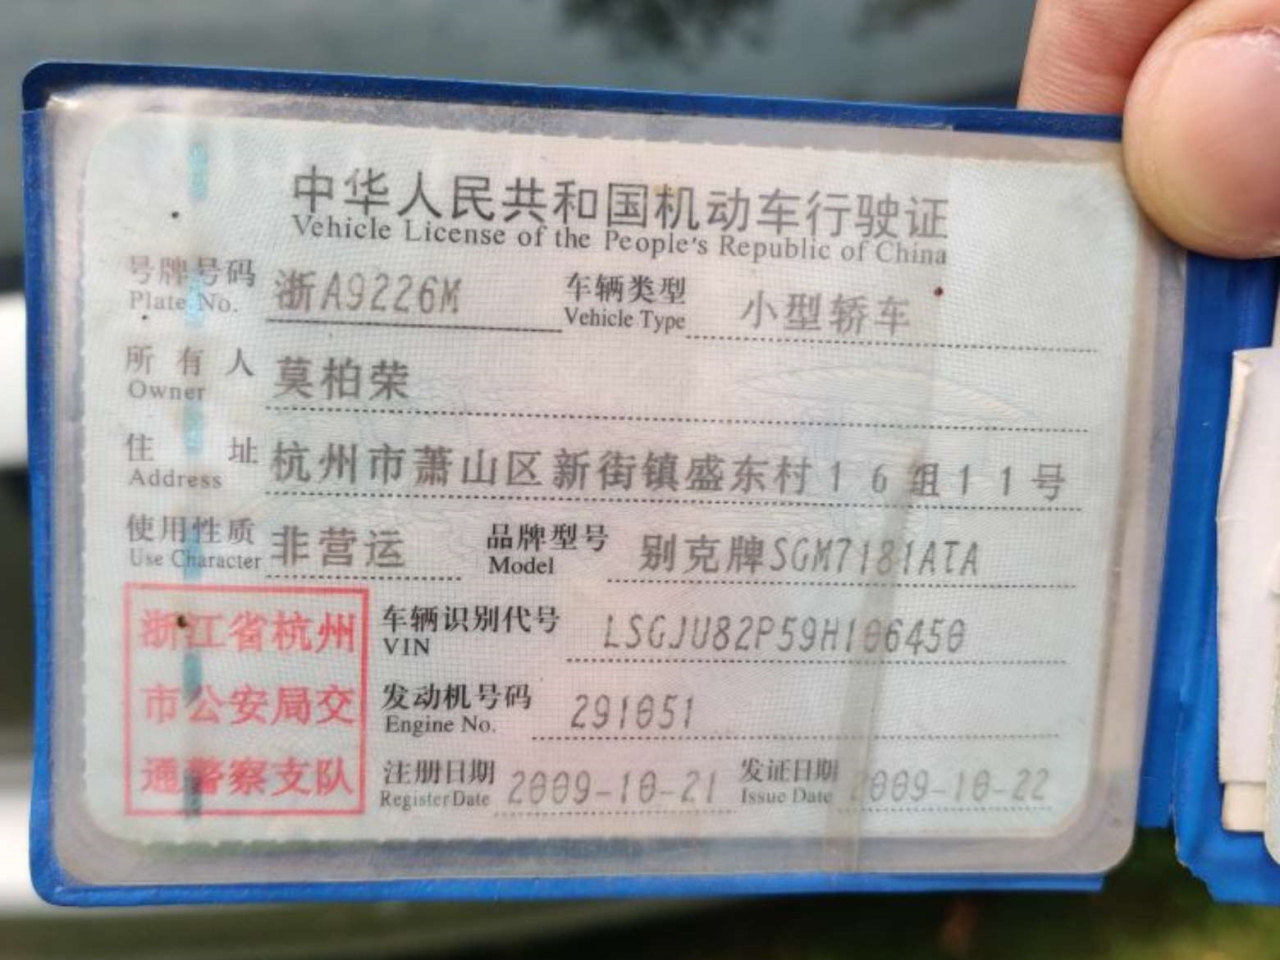 中华人民共和国机动车行驶证
Vehicle License of the People's Republic of China
号牌号码 浙A9226M 车辆类型 小型轿车
Plate No. Vehicle Type
所有人 莫柏荣
Owner
住址 杭州市萧山区新街镇盛东村16组11号
Address
使用性质 非营运 品牌型号 别克牌SGM7181ATA
Use Character Model
浙江省杭州
市公安局交
通警察支队
车辆识别代号 LSGJU82P59H106450
VIN
发动机号码 291051
Engine No.
注册日期 2009-10-21 发证日期 2009-10-22
Register Date Issue Date